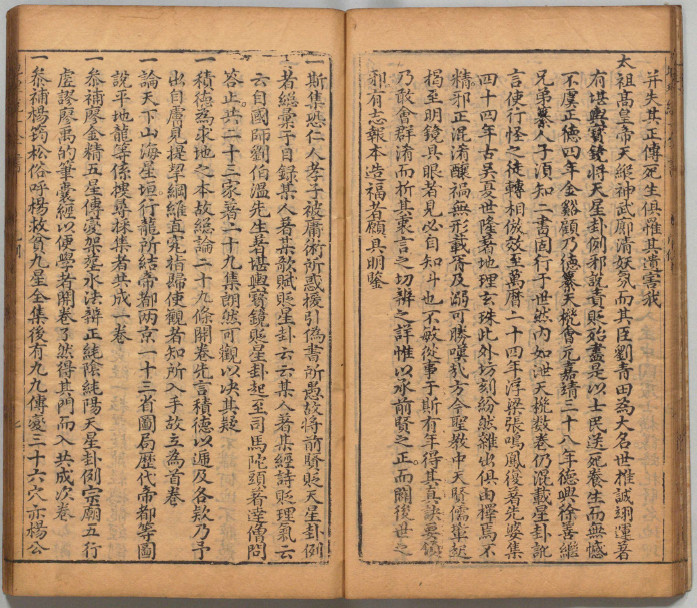 并失其正傳死生俱罹其遺害哉
太祖高皇帝天縱神武廓清妖氛而其臣劉青田為大名世推誠翊運著
有堪輿寶鏡將天星卦例邪說責貶殆盡是以士民送死養生而無憾
不虞正德四年金谿顧乃德纂天機會元嘉靖三十八年德興徐善繼
兄弟纂人子須知二書固行于世然內如泄天機數卷仍混載星卦訛
言使行怪之徒轉相倣效至萬曆二十四年浮梁張鳴鳳復著先婆集
四十四年古吳夏世隆著地理玄珠此外坊刻紛然雜出俱由擇焉不
精邪正混淆釀禍無形載胥及溺可勝嘆哉方今聖教中天驕儒輩起
揭至明鏡具眼者見必自知斗也不敏從事于斯有年得其真訣要領
乃敢會群淆而折其衷言之切辨之詳惟以承前賢之正而闢後世之
邪有志報本造福者願具明鑒
一斯集恐仁人孝子被庸術所惑援引偽書所愚故將前驕貶天星卦例
者總彙于目錄某人著某歌賦貶星卦云云某人著某經詩貶理氣云
云自國師劉伯溫先生著堪輿寶鏡貶星卦起至司馬陀頭著達僧問
答止共二十三家著二十九集朗然可觀以决其疑
一積德為求地之本故總論二十九條開卷先言積德以遞及各欵乃予
出自膚見提挈綱維直究指歸使觀者知所入手故立為首卷
一論天下山海星垣行龍所結帝都兩京一十三省圖局歷代帝都等圖
說平地龍等係搜尋採集者共成一卷
一叅補廖金精五星傳變架塟水法辨正純陰純陽天星卦例宗廟五行
虛謬廖禹的筆囊經以便學者開卷了然得其門而入共成次卷
一叅補楊筠松俗呼楊救貧九星全集後有九九傳變三十六穴亦楊公